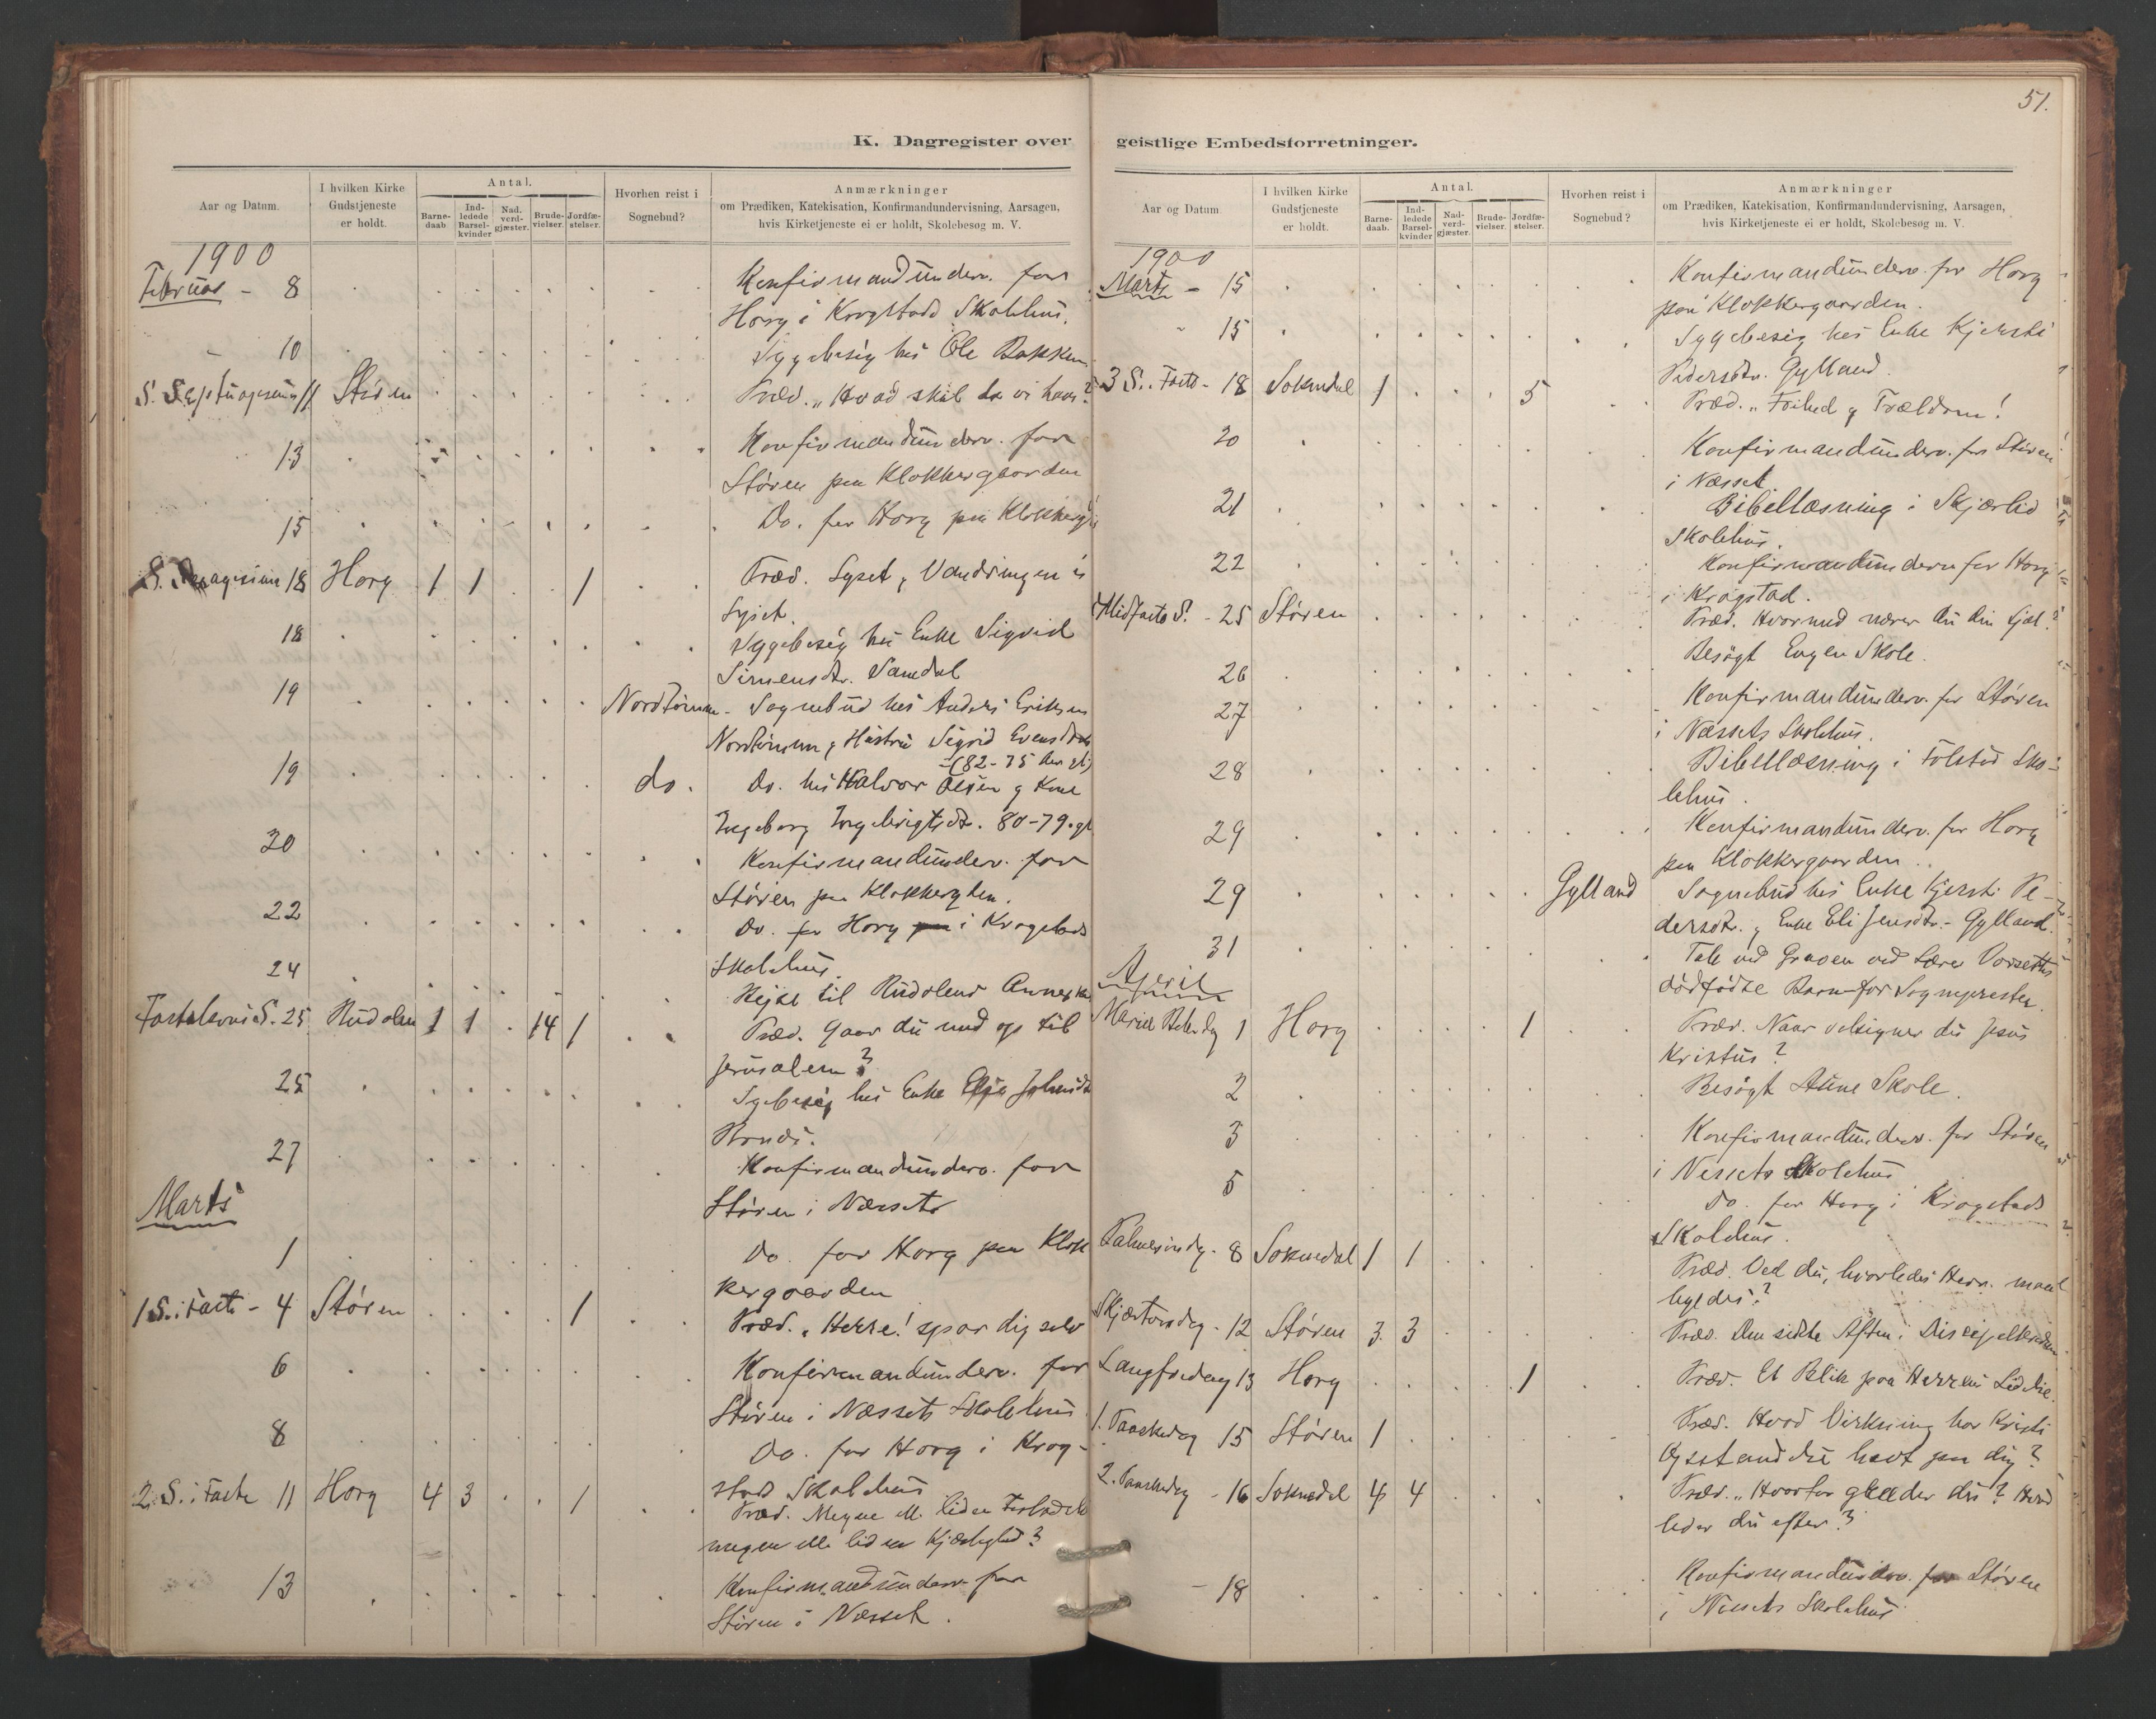 51.
K. Dagregister over
Aar og Datum.
I hvilken Kirke
Gudstjeneste
er holdt.
Antal.
Barne-
daab
Ind-
ledede
Barsel-
kvinder
Nad.
verd-
gjæster.
Brude-
vielser.
Jordfæ-
stelser.
Hvorhen reist i
Sognebud?
Anmærkninger
om Prædiken, Katekisation, Konfirmandundervisning, Aarsagen,
hvis Kirketjeneste ei er holdt, Skolebesøg m. V.
1900
Februar - 8 Konfirmandunderv. for
Horg i Krogstads Skolehus.
10 Sygebesøg hos Ole Bakken
S. Septuagesima 11 Støren Præd. „Hvad skal da vi have?
13 Konfirmandunderv. for
Støren paa Klokkergaarden
15 Do. for Horg paa Klokkerg
18 Horg 1 1 1 Præd. Lyset, Vandringen i
Lyset.
18 Sygebesøg hos Enke Sigrid
Simensdtr. Samdal
19 Sognebud hos Anders Eriksen
Hustru Sigrid
(82-75 Aar gl)
19 do. Do. hos Halvor Olsen og Kone
Ingeborg Ingebrigtsdtr. 80-79 gl
20 Konfirmandunderv. for
Støren paa Klokkergden.
22 Do. for Horg i Krogstads
Skolehus.
24 Rejse til Budalens Annex
Fastelavns S. 25 Budalen 1 1 14 1 Præd. Gaar du med op til
Jerusalem?
25 Sygebesøg hos Enke
27 Konfirmandunderv. for
Støren i Næssets
Marts
1 Do. for Horg paa Klok
kergaarden
1 S. i Faste - 4 Støren 1 Præd. „Herre! spar dig selv
6 Konfirmandunderv. for
Støren i Næssets Skolehus
8 Do. for Horg i Krog-
stad Skolehus
2. S. i Faste 11 Horg 4 3 1 Præd. Megen ell. liden
megen elle liden Kjærlighed?
13 Konfirmandunderv. for
Støren i Næsset.
geistlige Embedsforretninger.
Aar og Datum
I hvilken Kirke
Gudstjeneste
er holdt.
Antal.
Barne-
daab.
Ind-
ledede
Barsel-
kvinder
Nad-
verd-
gjæster.
Brude-
vielser.
Jordfæ-
stelser.
Hvorhen reist i
Sognebud?
Anmærkninger
om Prædiken, Katekisation, Konfirmandundervisning, Aarsagen,
hvis Kirketjeneste ei er holdt, Skolebesøg m. V.
1900
Marts - 15 Konfirmandunderv. for Horg
paa Klokkergaarden.
15 Sygebesøg hos Enke Kjersti
Pedersdtr. Gylland.
3 S. i Faste - 18 Soknedal 1 5 Præd. „Frihed og Trældom!
20 Konfirmandunderv. for Støren
i Næsset.
21 Bibellæsning i Skjærlid
Skolehus.
22 Konfirmandunderv for Horg
i Krogstad.
Midfaste S. - 25 Støren Præd. Hvormed nærer du din Sjæl?
26 Besøgt Engen Skole.
27 Konfirmandunderv. for Støren
i Næssets Skolehus.
28 Bibellæsning i Folstad Sko-
lehus.
29 Konfirmandunderv. for Horg
paa Klokkergaarden.
29 Gylland Sognebud hos Enke Kjersti Pe-
dersdtr. og Enke Eli Jensdtr. - Gylland.
31 Tale ved Graven ved Lærer
dødfødte Barn for Sognepresten.
April
Mariæ Beb.dg 1 Horg 1 Præd. Naar velsigner du Jesus
Kristus?
2 Besøgt Aune Skole.
3 Konfirmandunderv. for Støren
i Nessets Skolehus
5 Do. for Horg i Krogstads
Skolehus.
Palmesøndg. 8 Soknedal 1 1 Præd. Ved du, hvorledes Herren maa
hyldes?
Skjærtorsdag - 12 Støren 3 3 Præd. Den sidste Aften i Discipelkredsen
Langfredag 13 Horg 1 Præd. Et Blik paa Herrens Lidelse.
1. Paaskedag 15 Støren 1 Præd. Hvad Virkning har Kristi
Opstandelse havt paa dig?
2. Paaskedag - 16 Soknedal 4 4 Præd. „Hvorfor græder du? Hvad
leder du efter?
- 18 Konfirmandunderv. for Støren
i Nessets Skolehus